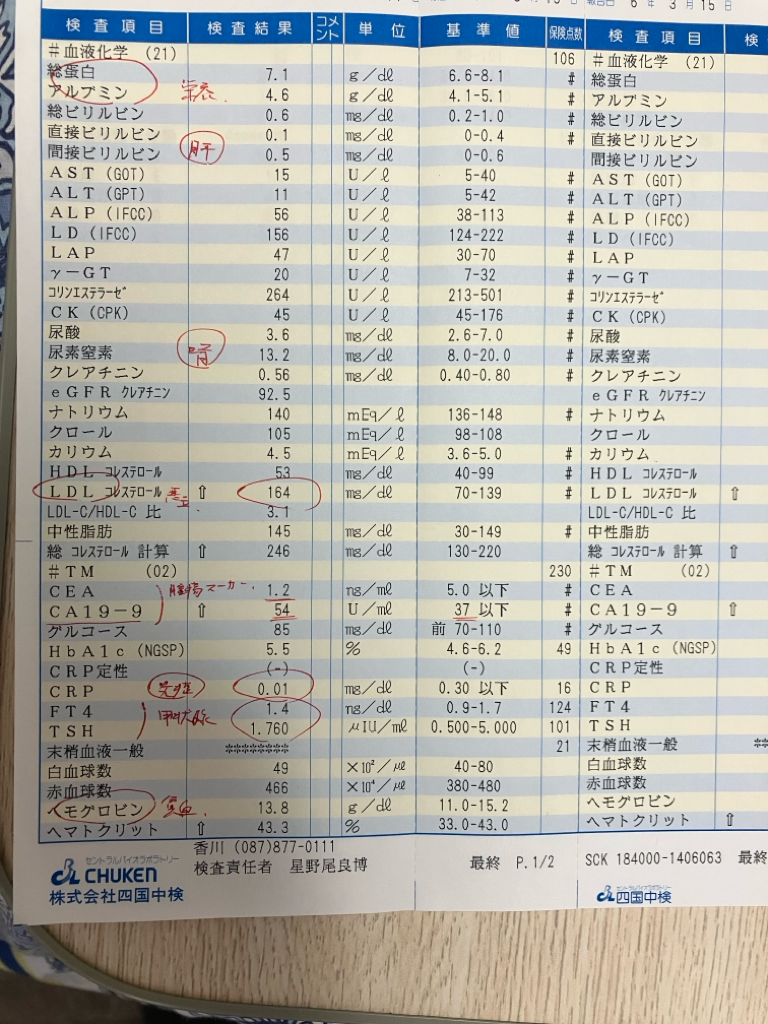 6 年 3 月 15 日
検査項目 検査結果 コメント 単位 基準値 保険点数 検査項目 検
＃血液化学 (21) 106 ＃血液化学 (21)
総蛋白 7.1 g／dℓ 6.6-8.1 # 総蛋白
アルブミン 4.6 g／dℓ 4.1-5.1 # アルブミン
総ビリルビン 0.6 mg／dℓ 0.2-1.0 # 総ビリルビン
直接ビリルビン 0.1 mg／dℓ 0-0.4 # 直接ビリルビン
間接ビリルビン 肝 0.5 mg／dℓ 0-0.6 間接ビリルビン
AST (GOT) 15 U／ℓ 5-40 # AST (GOT)
ALT (GPT) 11 U／ℓ 5-42 # ALT (GPT)
ALP (IFCC) 56 U／ℓ 38-113 # ALP (IFCC)
LD (IFCC) 156 U／ℓ 124-222 # LD (IFCC)
LAP 47 U／ℓ 30-70 # LAP
γ－GT 20 U／ℓ 7-32 # γ－GT
コリンエステラーゼ 264 U／ℓ 213-501 # コリンエステラーゼ
CK (CPK) 45 U／ℓ 45-176 # CK (CPK)
尿酸 3.6 mg／dℓ 2.6-7.0 # 尿酸
尿素窒素 腎 13.2 mg／dℓ 8.0-20.0 # 尿素窒素
クレアチニン 0.56 mg／dℓ 0.40-0.80 # クレアチニン
eGFR クレアチニン 92.5 eGFR クレアチニン
ナトリウム 140 mEq／ℓ 136-148 # ナトリウム
クロール 105 mEq／ℓ 98-108 クロール
カリウム 4.5 mEq／ℓ 3.6-5.0 # カリウム
HDL コレステロール 53 mg／dℓ 40-99 # HDL コレステロール
LDL コレステロール 悪玉 ⇧ 164 mg／dℓ 70-139 # LDL コレステロール ⇧
LDL-C/HDL-C 比 3.1 LDL-C/HDL-C 比
中性脂肪 145 mg／dℓ 30-149 # 中性脂肪
総 コレステロール 計算 ⇧ 246 mg／dℓ 130-220 総 コレステロール 計算 ⇧
＃TM (02) 230 ＃TM (02)
CEA 腫瘍マーカー 1.2 ng／ml 5.0 以下 # CEA
CA19－9 ⇧ 54 U／ml 37 以下 # CA19－9 ⇧
グルコース 85 mg／dℓ 前 70-110 # グルコース
HbA1c (NGSP) 5.5 % 4.6-6.2 49 HbA1c (NGSP)
CRP定性 (-) (-) CRP定性
CRP 炎症 0.01 mg／dℓ 0.30 以下 16 CRP
FT4 甲状腺 1.4 ng／dℓ 0.9-1.7 124 FT4
TSH 1.760 μIU／ml 0.500-5.000 101 TSH
末梢血液一般 ******** 21 末梢血液一般 **
白血球数 49 ×10²／μℓ 40-80 白血球数
赤血球数 466 ×10⁴／μℓ 380-480 赤血球数
ヘモグロビン 貧血 13.8 g／dℓ 11.0-15.2 ヘモグロビン
ヘマトクリット ⇧ 43.3 % 33.0-43.0 ヘマトクリット ⇧
香川 (087)877-0111
検査責任者 星野尾良博 最終 P.1/2 SCK 184000-1406063 最終
セントラルバイオラボラトリー
CHUKEN
株式会社四国中検
四国中検